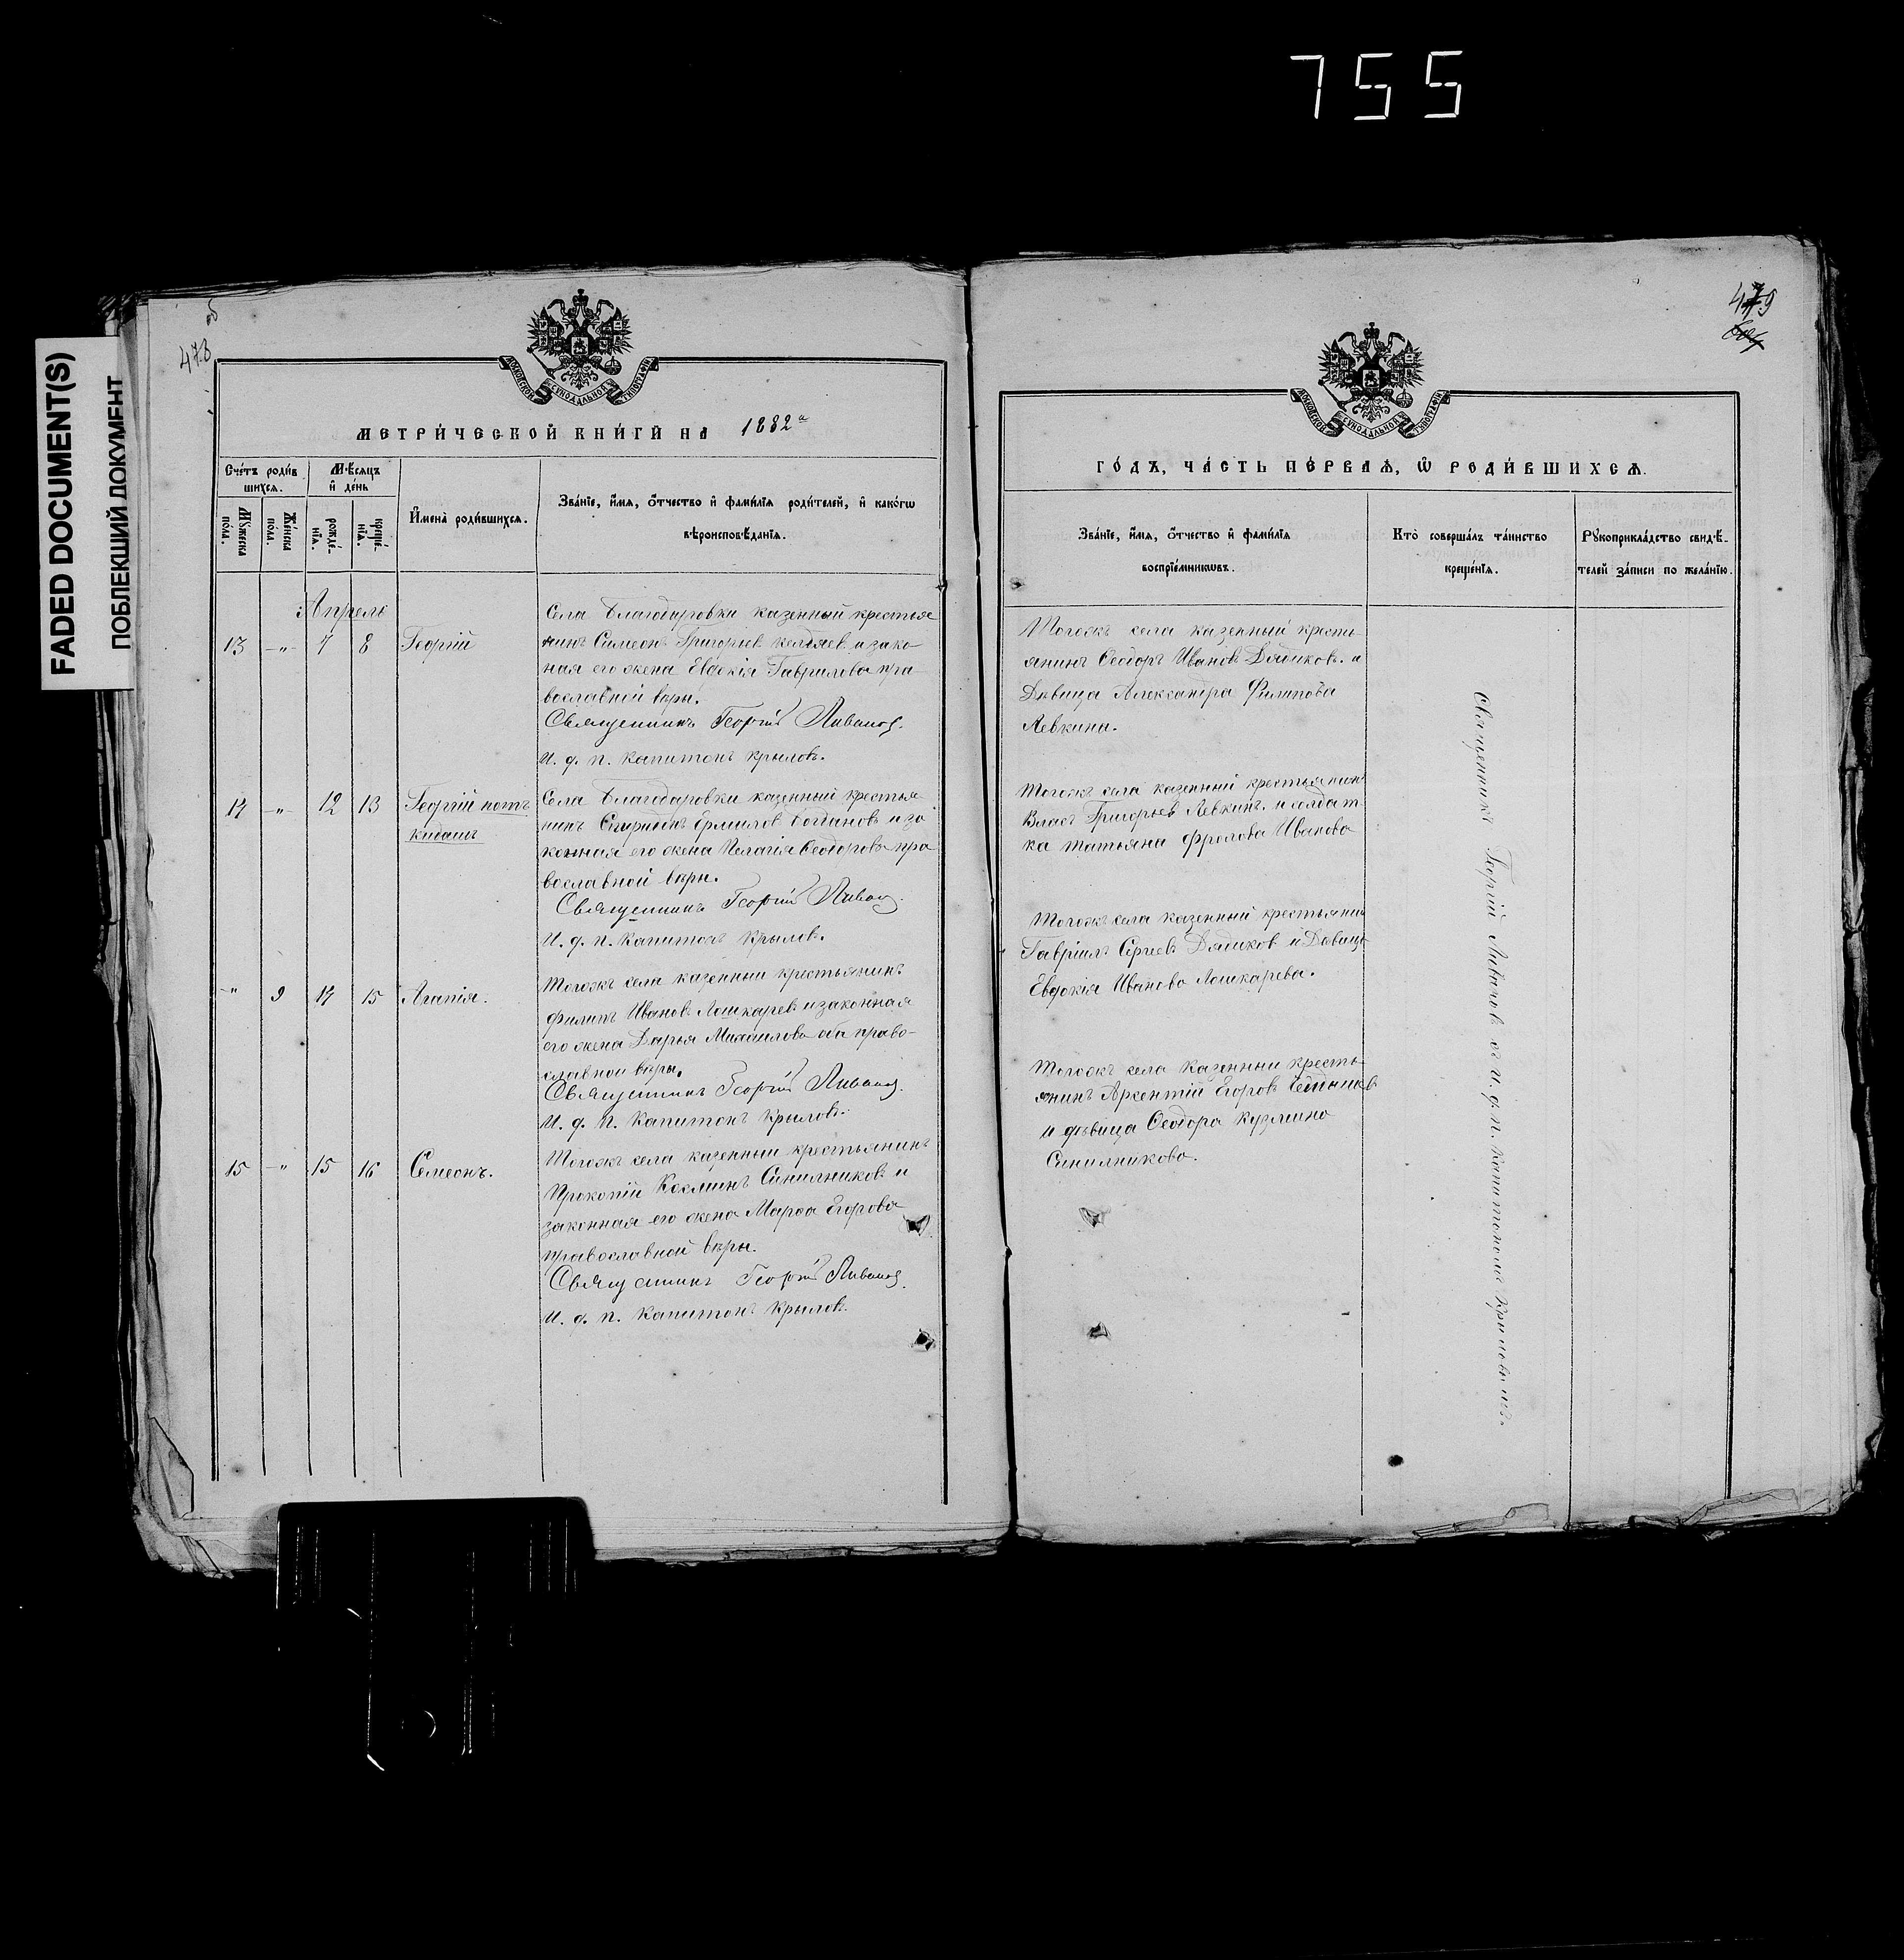 755
FADED DOCUMENT(S)
ПОБЛЕКШИЙ ДОКУМЕНТ
478
об
МОСКОВСКОЙ СѴНОДАЛЬНОЙ ТИПОГРАФІИ
МЕТРИ́ЧЕСКОЙ КНИ́ГИ НА 1882
Сче́тъ роди́вшихся.
Мѣ́сяцъ и҆ де́нь
Мꙋ́жеска по́ла.
Же́нска по́ла.
рожде́нїя.
креще́нїя.
И҆мена̀ роди́вшихся.
Зва́нїе, и҆́мя, ѻ҆́тчество и҆ фами́лїя роди́телей, и҆ како́гѡ
вѣроисповѣ́данїя.
Апрель
13 -„- 7 8 Георгій
Села Благодаровки казенный крестья
нинъ Симеонъ Григорьев келдяев и зако
ная его жена Евдокія Гаврилова пра
вославной вѣры.
Священникъ Георгій Ливанов.
И. д. п. Капитонъ Крыловъ.
14 -„- 12 13 Георгій
Села Благодаровки казенный крестья
нинъ Спиридонъ Ермилов Богдановъ и за
конная его жена Пелагія Ѳеодорова пра
вославной вѣры.
Священникъ Георгій Ливанов.
И. д. п. Капитонъ Крыловъ.
-„ 9 14 15 Агапія.
Тогожъ села казенный крестьянинъ
Филипъ Ивановъ Лошкаревъ и законная
его жена Дарья Михаилова оба право-
славной вѣры.
Священникъ Георгій Ливанов.
И. д. п. Капитонъ Крыловъ.
15 -„ 15 16 Семеонъ.
Тогожъ села казенный крестьянинъ
Прокопій Козминъ Синилниковъ и
законная его жена Марѳа Егорова
православной вѣры.
Священникъ Георгій Ливанов.
И. д. п. Капитонъ Крыловъ.
479
МОСКОВСКОЙ СѴНОДАЛЬНОЙ ТИПОГРАФІИ
ГО́ДЪ, ЧА́СТЬ ПЕ́РВАЯ, Ѡ҆ РОДИ́ВШИХСЯ.
Зва́нїе, и҆́мя, ѻ҆́тчество и҆ фами́лїя
воспрїе́мникѡвъ.
Кто̀ соверша́лъ та́инство
креще́нїя.
Рꙋкоприкла́дство свидѣ́-
телей за́писи по жела́нїю.
Тогожъ села казенный кресть
янинъ Ѳеодоръ Ивановъ Дядиковъ. и
Дѣвица Александра Филипова
Левкина.
Тогожъ села казенный крестьянинъ
Власъ Григорьев Левкинъ. и солдат
ка Татьяна Фролова Иванова
Тогожъ села казенный крестьянин
Гавріилъ Сергеевъ Дядиков и Дѣвица
Евдокія Иванова Лошкарева.
Тогожъ села казенный кресть-
янинъ Арсентій Егоровъ
и дѣвица Ѳеодора Кузмина
Синилникова.
Священникъ Георгій Ливановъ съ и. д. п. Капитономъ Крыловымъ.